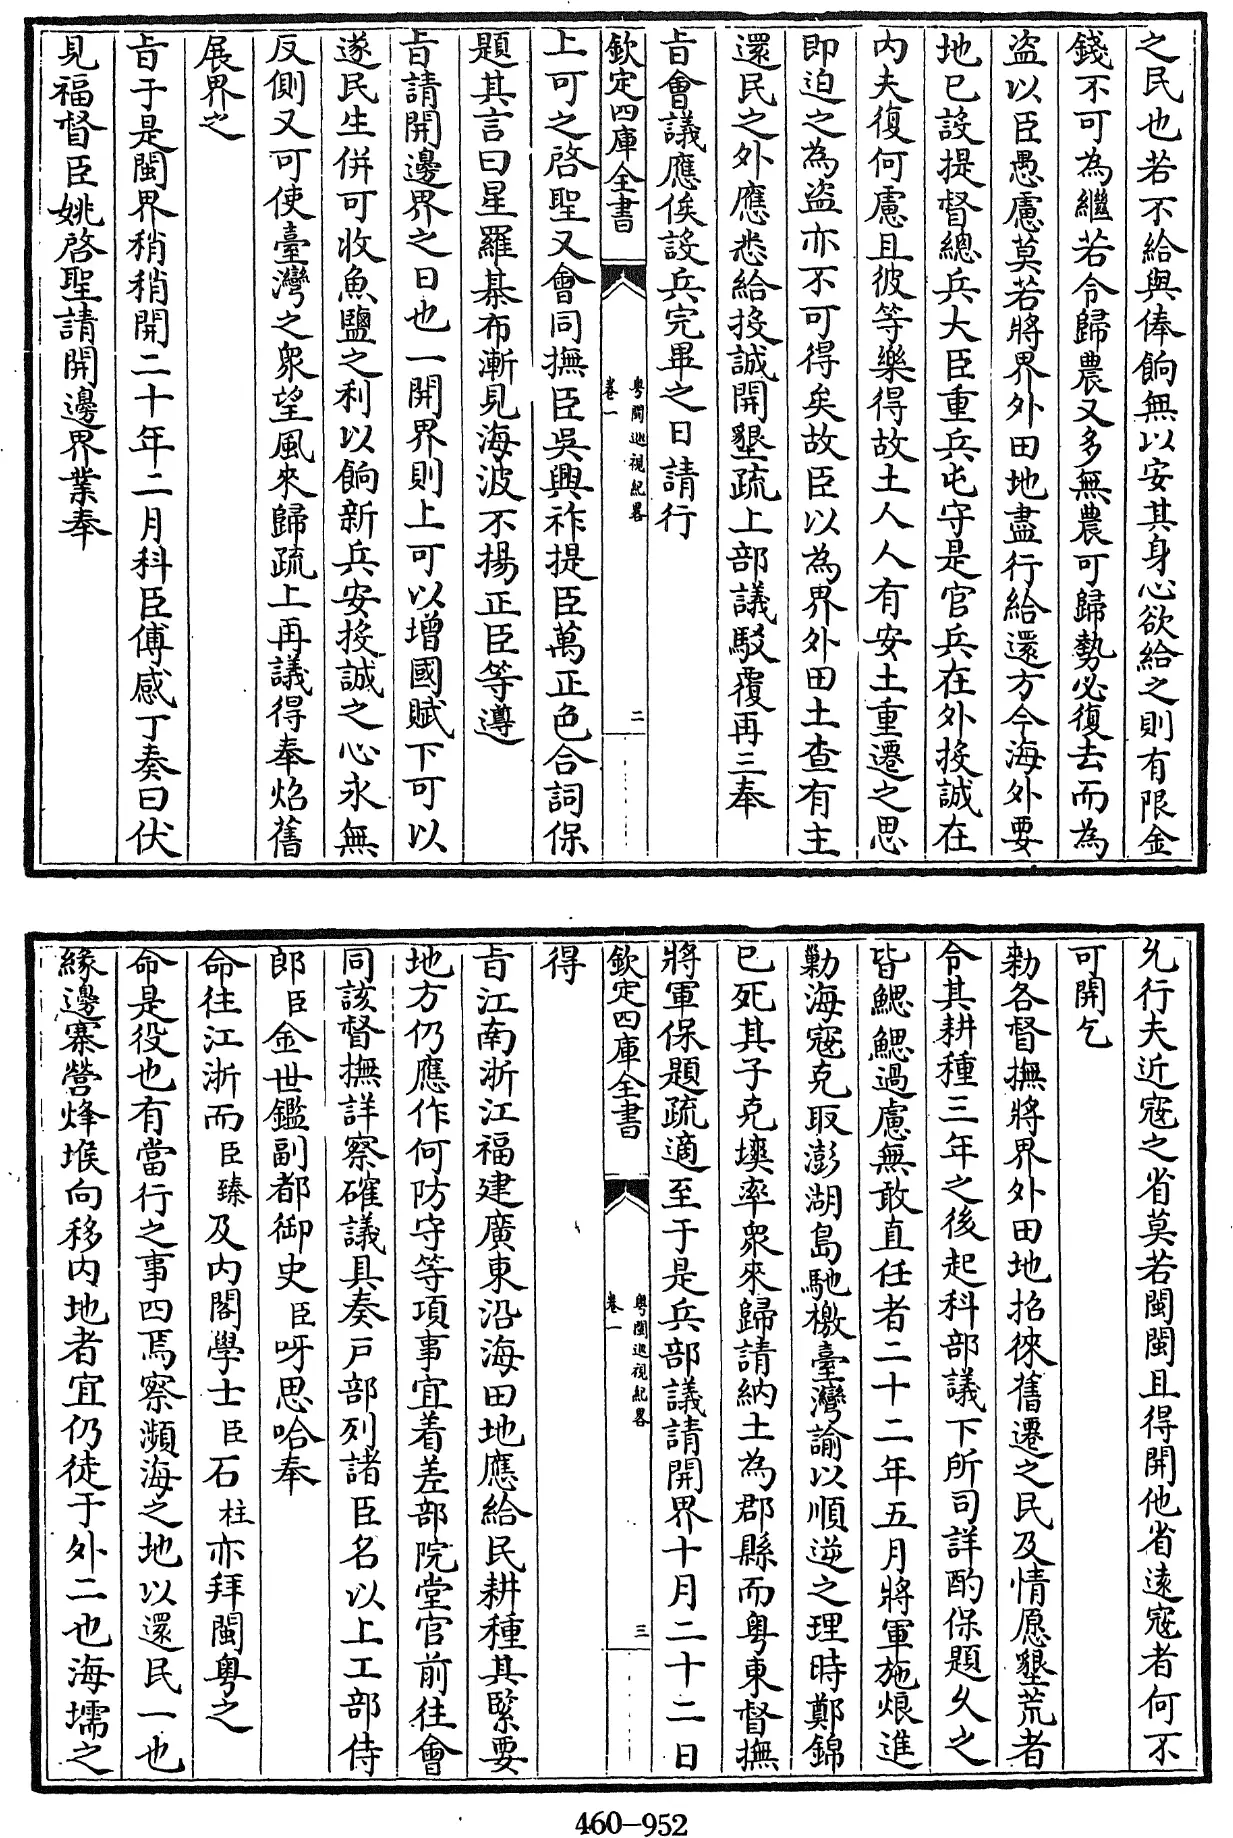 之民也若不給與俸餉無以安其身心欲給之則有限金
錢不可為繼若令歸農又多無農可歸勢必復去而為
盗以臣愚慮莫若將界外田地盡行給還方今海外要
地已設提督總兵大臣重兵屯守是官兵在外投誠在
内夫復何慮且彼等樂得故土人人有安土重遷之思
即迫之為盗亦不可得矣故臣以為界外田土查有主
還民之外應悉給投誠開墾疏上部議駁覆再三奉
㫖會議應俟設兵完畢之日請行
欽定四庫全書
粤閩巡視紀畧
卷一
二
上可之啓聖又會同撫臣吳興祚提臣萬正色合詞保
題其言曰星羅棊布漸見海波不揚正臣等遵
㫖請開邊界之日也一開界則上可以增國賦下可以
遂民生併可收魚鹽之利以餉新兵安投誠之心永無
反側又可使臺灣之衆望風來歸疏上再議得奉炤舊
展界之
㫖于是閩界稍稍開二十年二月科臣傅感丁奏曰伏
見福督臣姚啓聖請開邊界業奉
允行夫近宼之省莫若閩閩且得開他省逺宼者何不
可開乞
勅各督撫將界外田地招徠舊遷之民及情愿墾荒者
令其耕種三年之後起科部議下所司詳酌保題久之
皆鰓鰓過慮無敢直任者二十二年五月將軍施烺進
勦海宼克取澎湖島馳檄臺灣諭以順逆之理時鄭錦
已死其子克塽率衆來歸請納土為郡縣而粤東督撫
將軍保題疏適至于是兵部議請開界十月二十二日
欽定四庫全書
粤閩巡視紀畧
卷一
三
得
㫖江南浙江福建廣東沿海田地應給民耕種其緊要
地方仍應作何防守等項事宜着差部院堂官前往會
同該督撫詳察確議具奏户部列諸臣名以上工部侍
郎臣金世鑑副都御史臣呀思哈奉
命往江浙而臣臻及内閣學士臣石柱亦拜閩粤之
命是役也有當行之事四焉察瀕海之地以還民一也
緣邊寨營烽堠向移内地者宜仍徒于外二也海壖之
460-952